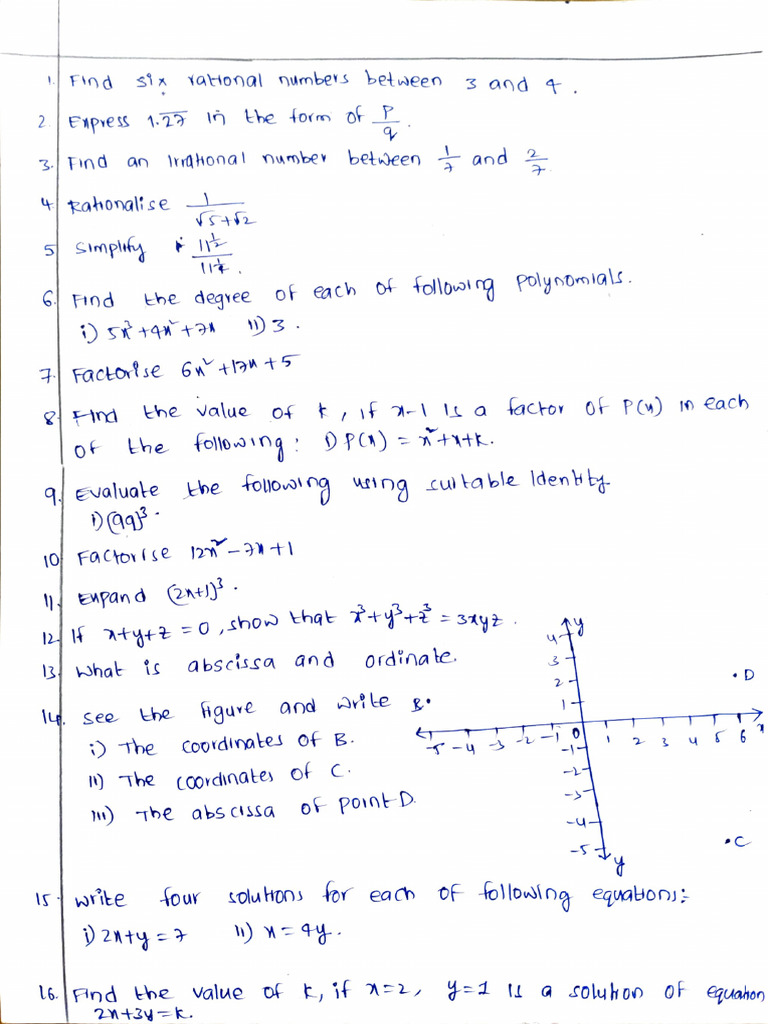 1. Find six rational numbers between 3 and 4.
2. Express 1.2̅7̅ in the form of P/q.
3. Find an Irrational number between 1/7 and 2/7
4. Rationalise 1/(√5+√2)
5 Simplify 11^(1/2)/11^(1/4).
6. Find the degree of each of following polynomials.
i) 5x³+4x²+7x II) 3.
7. Factorise 6x²+17x+5
8. Find the value of k, if x-1 is a factor of P(x) in each
of the following: I) P(x) = x²+x+k.
9. Evaluate the following using suitable Identity.
I) (99)³.
10 Factorise 12x²-7x+1
11. Expand (2x+1)³.
12. If x+y+z=0, show that x³+y³+z³=3xyz.
13. What is abscissa and ordinate.
14. See the figure and write
i) The coordinates of B.
II) The coordinates of C.
III) The abscissa of point D.
y
4
3
2
1
B
D
-5 -4 -3 -2 -1 0 1 2 3 4 5 6 x
-1
-2
-3
-4
-5
y
C
15. Write four solutions for each of following equations:-
i) 2x+y=7 II) x=4y.
16. Find the value of k, if x=2, y=1 is a solution of equation
2x+3y=k.